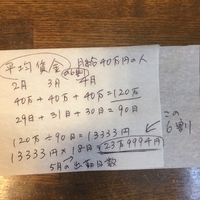 平均賃金 月給40万円の人
の6割
2月 3月 4月
40万+40万+40万=120万
29日+31日+30日=90日
120万÷90日=13333円
この6割
13333円×18日=23万9994円
5月の出勤日数